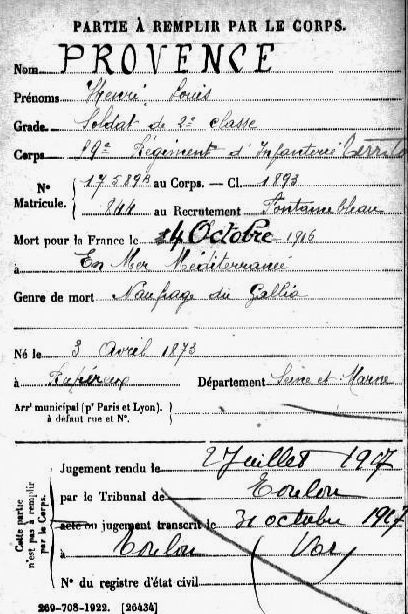 PARTIE À REMPLIR PAR LE CORPS.
Nom PROVENCE
Prénoms Henri Louis
Grade Soldat de 2e classe
Corps 89e Régiment d'Infanterie Territ
N° Matricule. { 17589B au Corps. — Cl. 1893
844 au Recrutement Fontainebleau
Mort pour la France le 4 Octobre 1916
à En Mer Méditerranée
Genre de mort Naufrage du Gallia
Né le 3 Avril 1873
à Département Seine et Marne
Arrt municipal (pr Paris et Lyon). }
à défaut rue et N°.
Cette partie n'est pas à remplir par le Corps.
Jugement rendu le 2 Juillet 1917
par le Tribunal de Toulon
acte ou jugement transcrit le 31 octobre 1917
à Toulon (Var)
N° du registre d'état civil
269-708-1922. [26434]